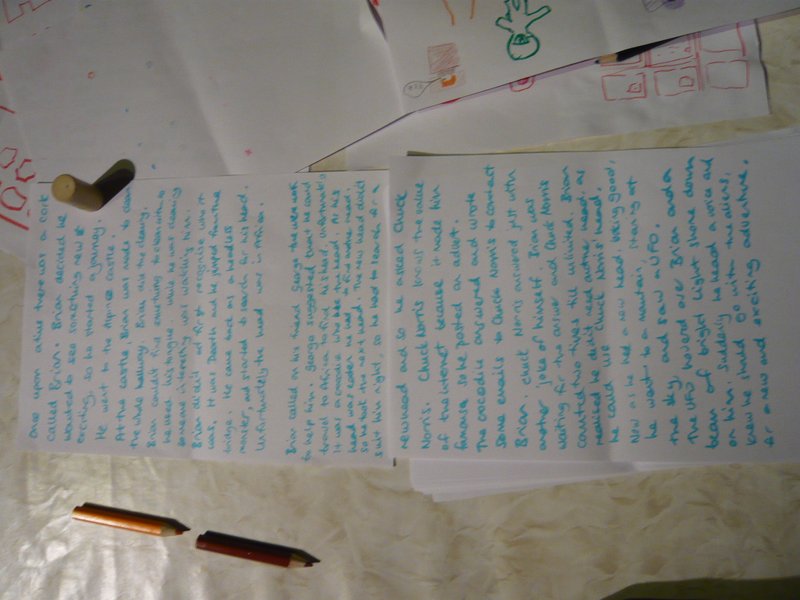 Once upon a time there was a cork
called Brian. Brian decided he
wanted to see something new &
exciting, so he started a journey.
He went to the Aspire castle.
At the castle, Brian was made to clean
the whole hallway. Brian did the cleaning.
Brian couldn't find anything to clean with so
he used his tongue. While he was cleaning
someone interesting was watching him.
Brian didn't at first recognise who it
was, it was Death and he jumped from the
fridge. He came back as a headless
monster, and started to search for his head.
Unfortunately the head was in Africa.
Brian called on his friend George the
to help him. George suggested that he could
travel to Africa to find his head. Unfortunately
It was a crocodile who had the head. As his
head was eaten, he had to find another head.
so took the next head. The new head didn't
suit him right, so he had to search for a
new head and so he asked Chuck
Norris. Chuck Norris knows the value
of the internet because it made him
famous, so he posted an advert.
The crocodile answered and wrote
some emails to Chuck Norris to contact
Brian. Chuck Norris answered just with
another joke of himself. Brian was
waiting for the answer and Chuck Norris
counted two times till unlimited. Brian
realised he didn't need another head as
he could use Chuck Norris' head.
Now as he had a new head being good,
he went to a mountain, staring at
the sky, and saw a UFO.
The UFO hovered over Brian and a
beam of bright light shone down
on him. Suddenly he heard a voice and
knew he should go with the aliens,
for a new and exciting adventure.